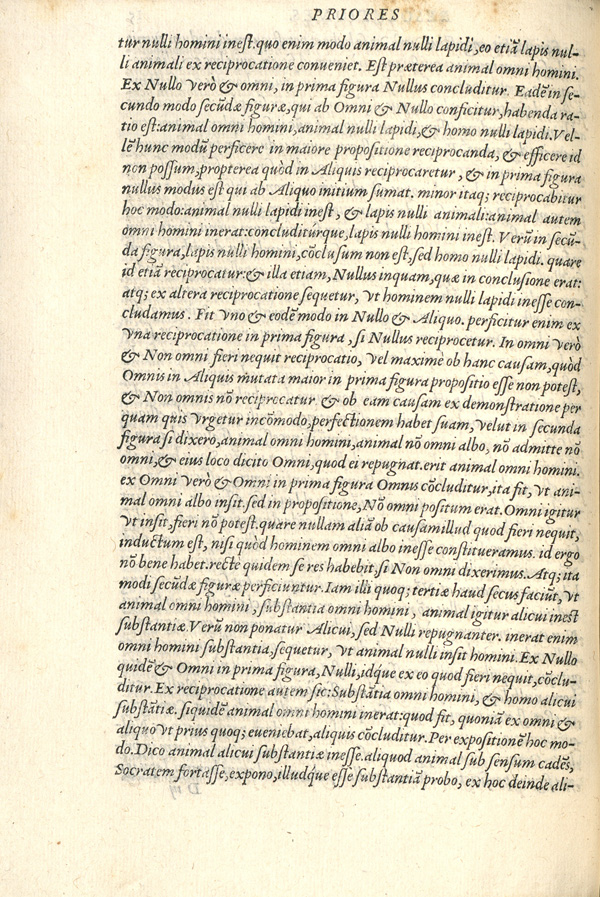 PRIORES
tur nulli homini inest. quo enim modo animal nulli lapidi, eo etiā lapis nul-
li animali ex reciprocatione conveniet. Est præterea animal omni homini.
Ex Nullo verò & omni, in prima figura Nullus concluditur. Eadē in se-
cundo modo secūdæ figuræ, qui ab Omni & Nullo conficitur, habenda ra-
tio est: animal omni homini, animal nulli lapidi, & homo nulli lapidi. Vel-
lē hunc modū perficere in maiore propositione reciprocanda, & efficere id
non possum, propterea quòd in Aliquis reciprocaretur, & in prima figura
nullus modus est qui ab Aliquo initium sumat. minor itaq; reciprocabitur
hoc modo: animal nulli lapidi inest, & lapis nulli animali: animal autem
omni homini inerat: concluditurque, lapis nulli homini inest. Verū in secū-
da figura, lapis nulli homini, cōclusum non est, sed homo nulli lapidi. quare
id etiā reciprocatur: & illa etiam, Nullus inquam, quæ in conclusione erat:
atq; ex altera reciprocatione sequetur, vt hominem nulli lapidi inesse con-
cludamus. Fit vno & eodē modo in Nullo & Aliquo. perficitur enim ex
vna reciprocatione in prima figura, si Nullus reciprocetur. In omni verò
& Non omni fieri nequit reciprocatio, vel maximè ob hanc causam, quòd
Omnis in Aliquis mutata maior in prima figura propositio esse non potest,
& Non omnis nō reciprocatur & ob eam causam ex demonstratione per
quam quis vrgetur incōmodo, perfectionem habet suam, velut in secunda
figura si dixero, animal omni homini, animal nō omni albo, nō admitte nō
omni, & eius loco dicito Omni, quod ei repugnat. erit animal omni homini.
ex Omni verò & Omni in prima figura Omnis cōcluditur, ita fit, vt ani-
mal omni albo insit. sed in propositione, Nō omni positum erat. Omni igitur
vt insit, fieri nō potest. quare nullam aliā ob causam illud quod fieri nequit,
inductum est, nisi quòd hominem omni albo inesse constitueramus. id ergo
nō bene habet. rectè quidem se res habebit, si Non omni dixerimus. Atq; ita
modi secūdæ figuræ perficiuntur. Iam illi quoq; tertiæ haud secus faciūt, vt
animal omni homini, substantia omni homini, animal igitur alicui inest
substantiæ. Verū non ponatur Alicui, sed Nulli repugnanter. inerat enim
omni homini substantia, sequetur, vt animal nulli insit homini. Ex Nullo
quidē & Omni in prima figura, Nulli, idque ex eo quod fieri nequit, cōclu-
ditur. Ex reciprocatione autem sic: Substātia omni homini, & homo alicui
substātiæ. siquidē animal omni homini inerat: quod fit, quoniā ex omni &
aliquo vt prius quoq; eueniebat, aliquis cōcluditur. Per expositionē hoc mo-
do. Dico animal alicui substantiæ inesse. aliquod animal sub sensum cadēs,
Socratem fortasse, expono, illudque esse substantiā probo, ex hoc deinde ali-